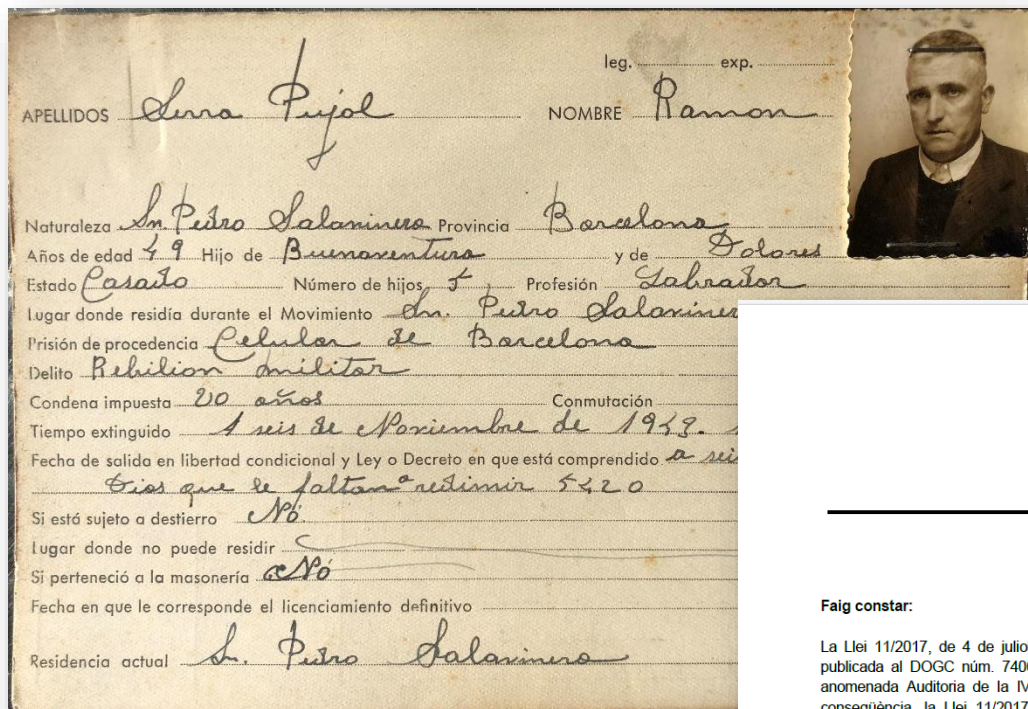 leg. exp.
APELLIDOS Serra Pujol NOMBRE Ramon
Naturaleza Sn. Pedro Salavinera Provincia Barcelona
Años de edad 49 Hijo de Buenaventura y de Dolores
Estado Casado Número de hijos Profesión Labrador
Lugar donde residía durante el Movimiento Sn. Pedro Salaviner
Prisión de procedencia Celular de Barcelona
Delito Rebilion militar
Condena impuesta 20 años Conmutación
Tiempo extinguido seis de Noviembre de
Fecha de salida en libertad condicional y Ley o Decreto en que está comprendido a sei
Dias que le faltan a redimir 5420
Si está sujeto a destierro No
Lugar donde no puede residir
Si perteneció a la masonería No
Fecha en que le corresponde el licenciamiento definitivo
Residencia actual S. Pedro Salavinera
Faig constar:
La Llei 11/2017, de 4 de julio
publicada al DOGC núm. 740
anomenada Auditoria de la IV
conseqüència, la Llei 11/2017